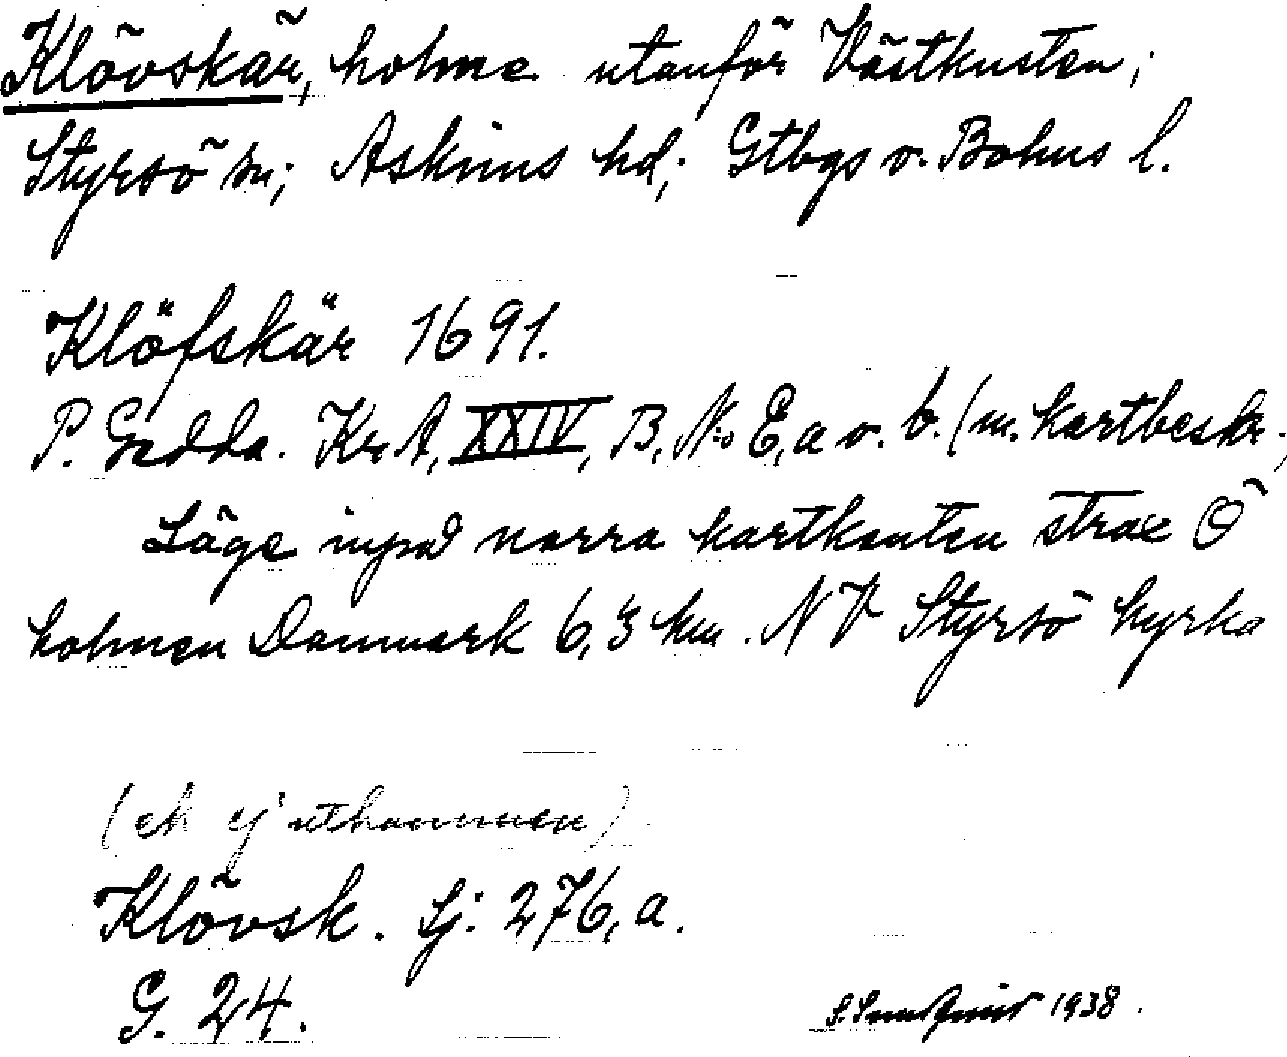 Klövskär, holme utanför Västkusten;
Styrsö sn; Askims hd; Gtbgs o. Bohus l.
Klöfskär 1691.
P. Gedda. Kr. A, XXIV, B, No E, a o. b. (m. kartbeskr.)
Läge invid norra kartkanten strax Ö
holmen Danmark 6,3 km. NV Styrsö kyrka
(ek ej utkommen)
Klövsk. Sj. 276, a.
G. 24.
1938.